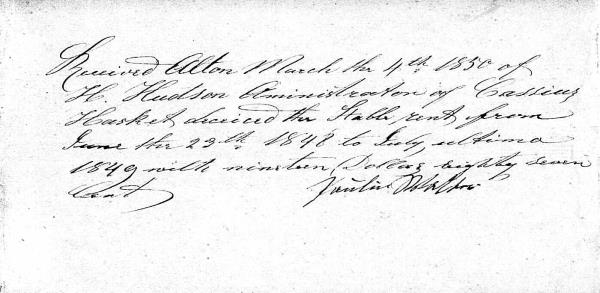 Received Alton March the 4th 1850 of
H. Hudson Aministrator of Cassius
Hasket deceiced the Stable, rent from
June the 29th 1848 to July, ultimo
1849 with nineteen Dollars eighty seven
Cent